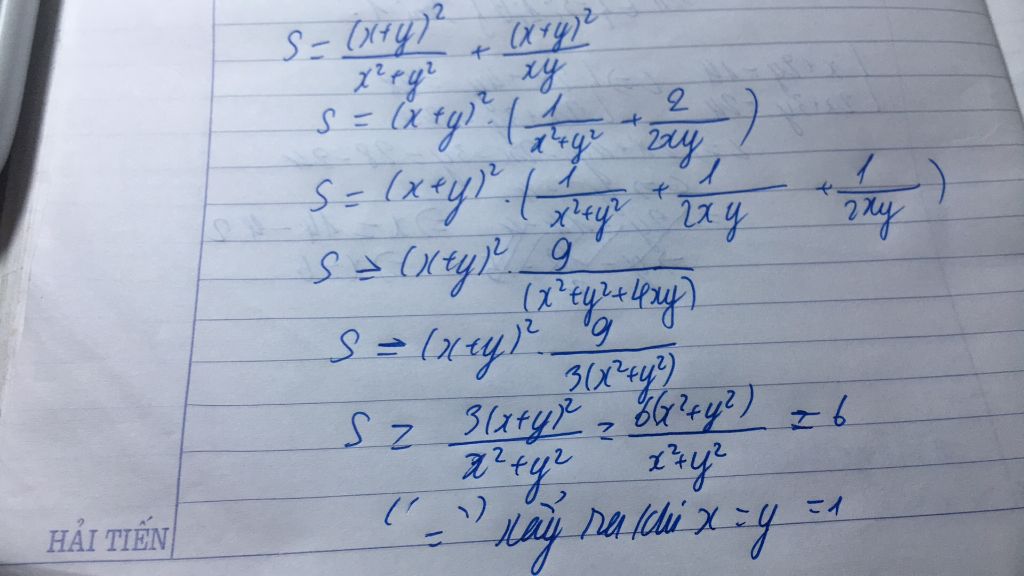 S = (x+y)²/(x²+y²) + (x+y)²/(xy)
S = (x+y)² . ( 1/(x²+y²) + 2/(2xy) )
S = (x+y)² . ( 1/(x²+y²) + 1/(2xy) + 1/(2xy) )
S ≥ (x+y)² . 9/(x²+y²+4xy)
S ≥ (x+y)² . 9/(3(x²+y²))
S ≥ 3(x+y)²/(x²+y²) ≥ 6(x²+y²)/(x²+y²) ≥ 6
" = " xảy ra khi x = y = 1
HẢI TIẾN